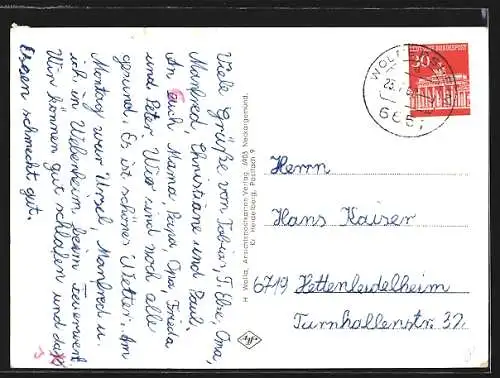 Viele Grüße von Tobias, T. Else, Oma,
Manfred, Christiane und Paul.
An Euch Mama, Papa, Opa, Frieda
und Peter. Wir sind noch alle
gesund. Es ist schönes Wetter. Am
Montag war Ursel, Manfred u.
ich in Webenheim beim Feuerwerk
Wir können gut schlafen und das
Essen schmeckt gut.
H. Wolla, Ansichtspostkarten Verlag, 6903 Neckargemünd,
Kr. Heidelberg, Postfach 9
DEUTSCHE BUNDESPOST
30
666
Herrn
Hans Kaiser
6719 Hettenleidelheim
Turnhallenstr. 32.